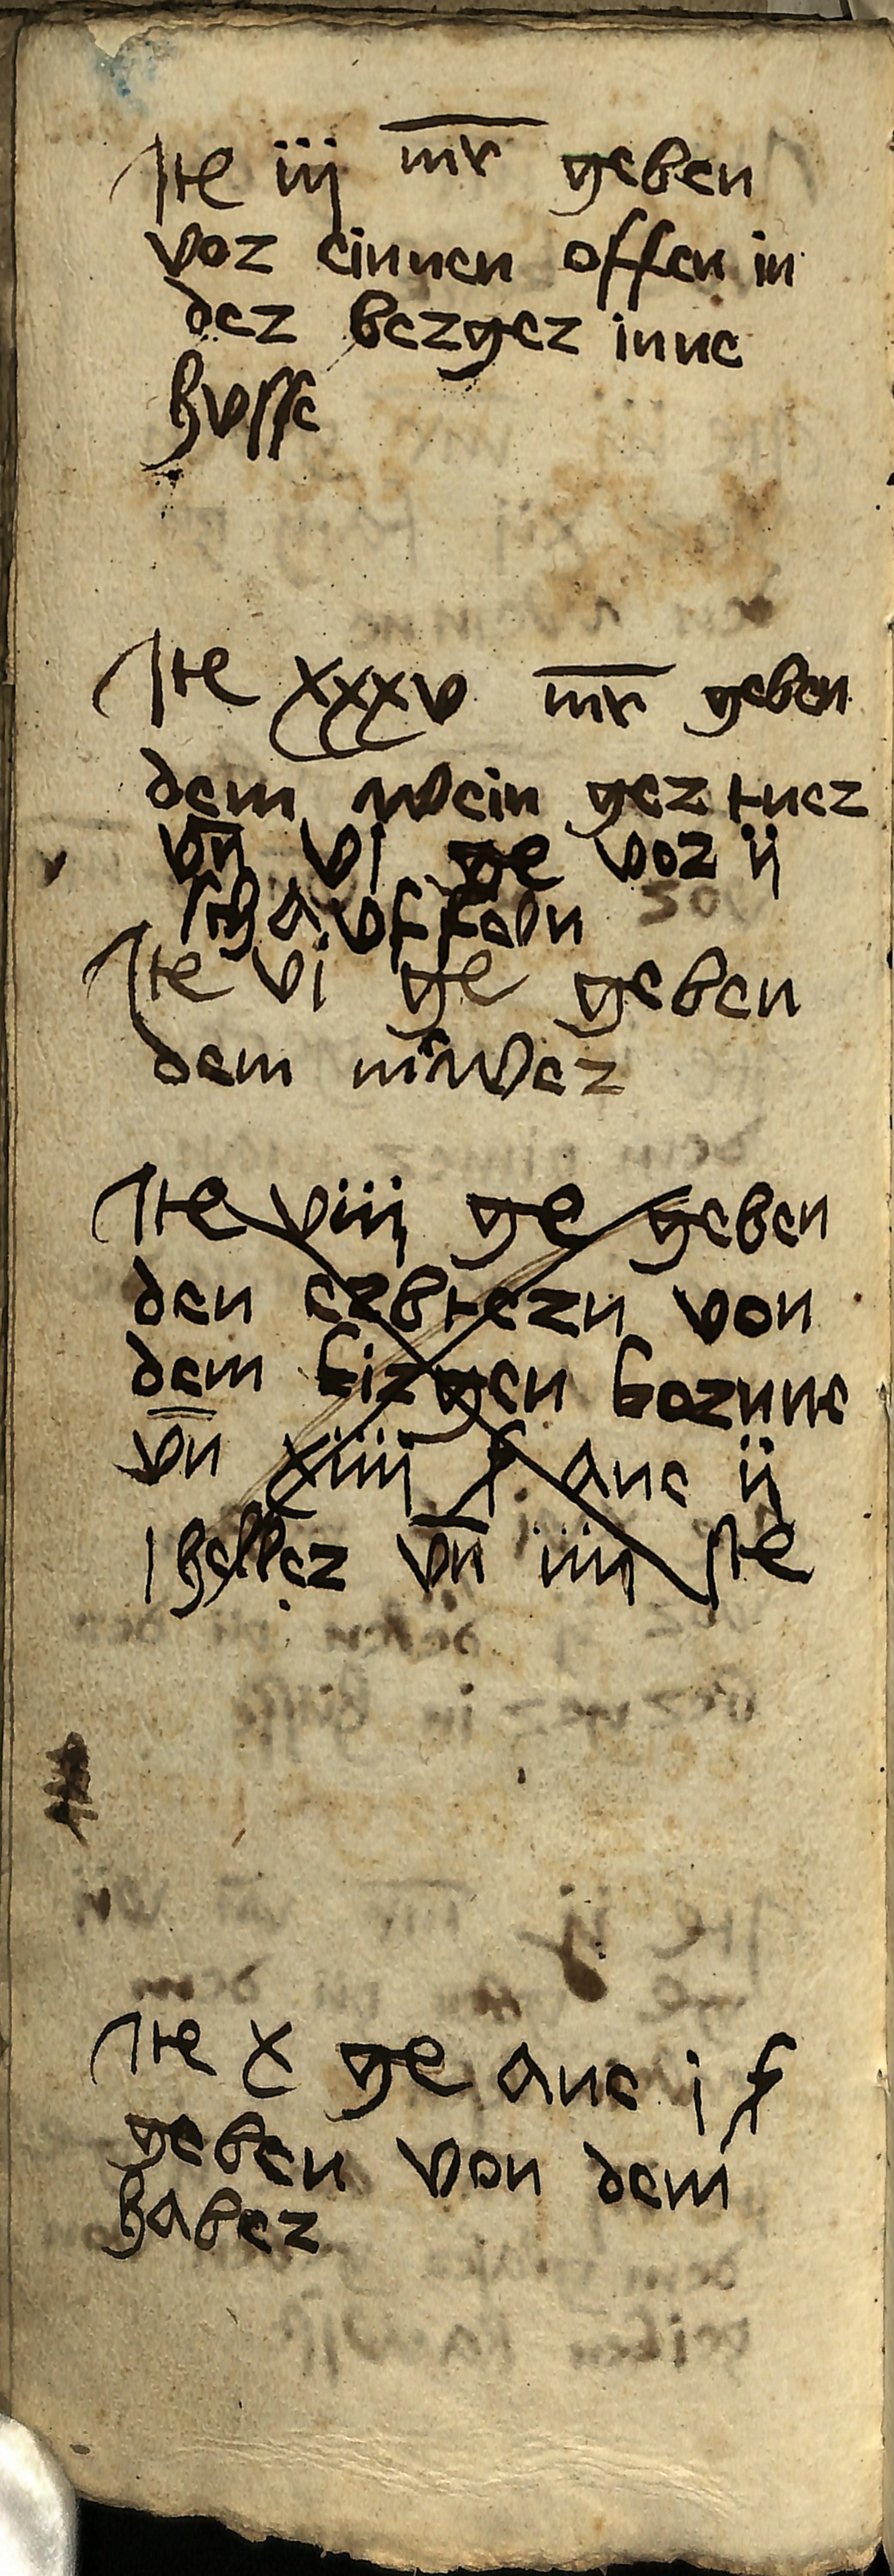 Ite iij mr geben
vor einnen offen in
der berger inne
husse
Ite xxxv mr geben
dem wein gertner
vn vi ge vor ij
schavffeln
Ite vi ge geben
dem mrwer
Ite viij ge geben
den erbtern von
dem kirgen hornne
vn xiiij f ane ij
heller vn iiii
Ite x ge ane i f
geben von dem
haber